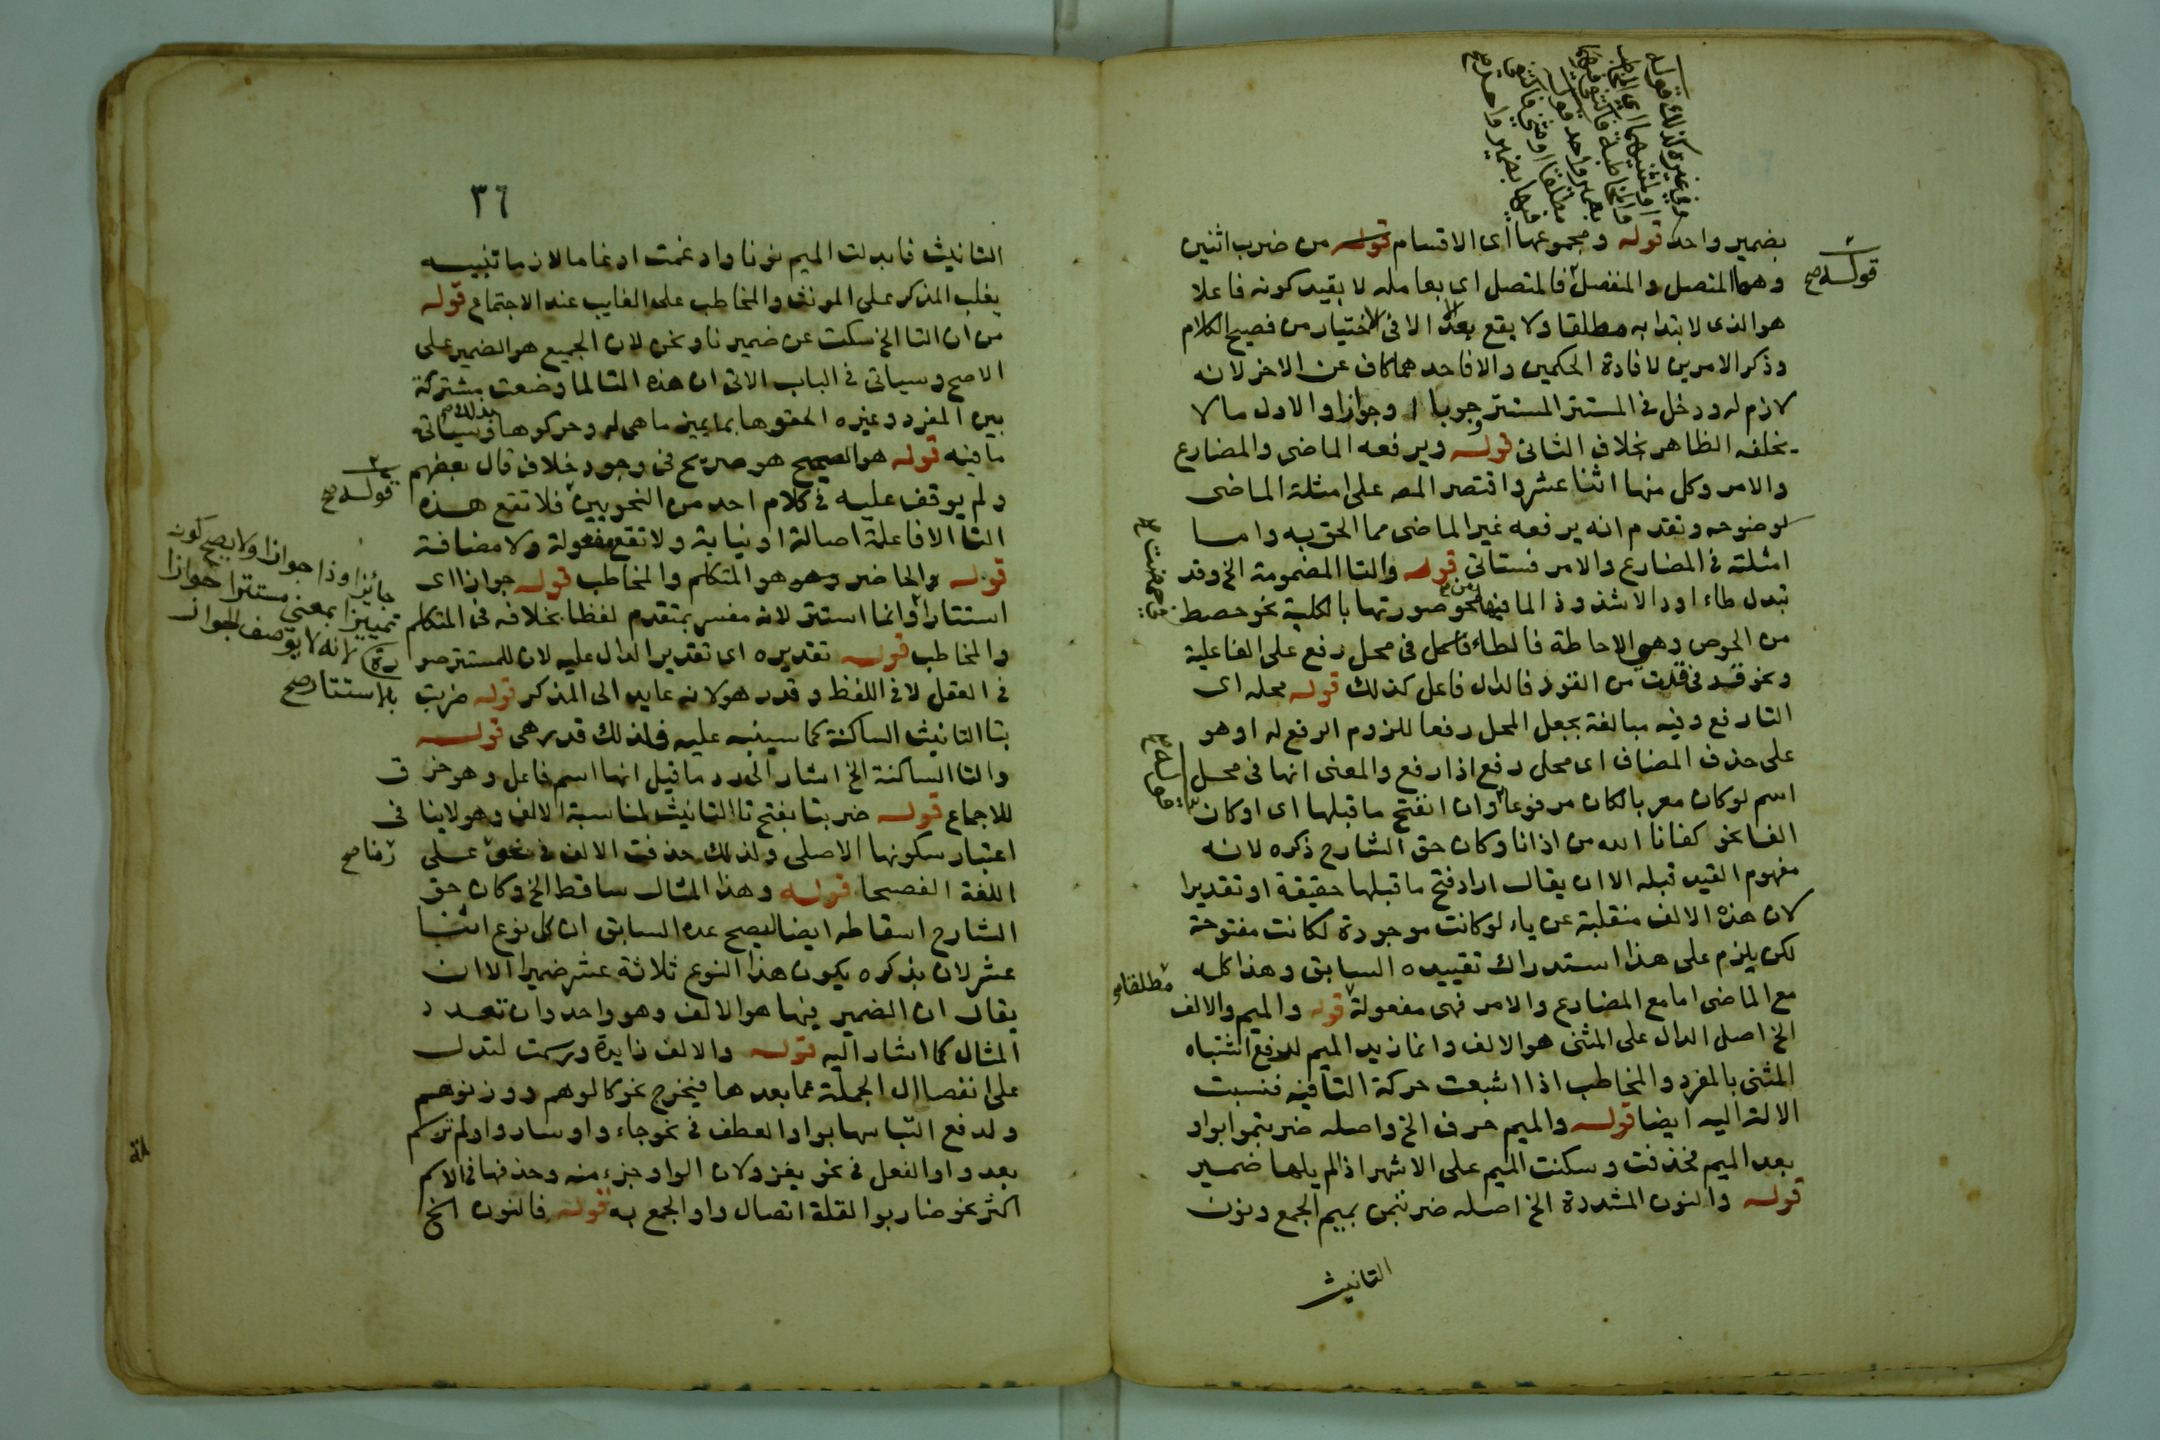 بضمير واحد قوله ومجموعها اى الاقسام قوله من ضرب اثنين
وهما المتصل والمنفصل فالمتصل اى بعامله لا بقيد كونه فاعلا
هو الذى لا يبتدا به مطلقا ولا يقع بعد الا فى الاختيار من فصيح الكلام
وذكر الامرين لافادة الحكمين والا فاحدهما كاف عن الاخر لانه
لازم له ودخل فى المستتر المستتر وجوبا او جوازا والاول ما لا
يخلفه الظاهر بخلاف الثانى قوله ويرفعه الماضى والمضارع
والامر وكل منها اثنا عشر واقتصر المص على امثلة الماضى
لوضوحه وتقدم انه يرفعه غير الماضى مما الحق به واما
امثلته فى المضارع والامر فستاتى قوله والتا المضمومة الخ وقد
تبدل طاء او دالا شذوذا لما فيها من محو صورتها بالكلية نحو حصط
من الحوص وهى الاحاطة فالطاء فى محل رفع على الفاعلية
ونحو فزد فى فزت من الفوز فالدال فاعل كذلك قوله محله اى
التا رفع وفيه مبالغة بجعل المحل رفعا للزوم الرفع له او هو
على حذف المضاف اى محل رفع اذا رفع والمعنى انها فى محل
اسم لو كان معربا لكان مرفوعا وان انفتح ما قبلها اى او كان
الفا نحو كفانا الله من اذانا وكان حق الشارح ذكره لانه
مفهوم القيد قبله الا ان يقال اراد فتح ما قبلها حقيقة او تقديرا
لان هذه الالف منقلبة عن ياء لو كانت موجودة لكانت مفتوحة
لكن يلزم على هذا استدراك تقييده السابق وهذا كله
مع الماضى اما مع المضارع والامر فهى مفعولة قوله والميم والالف
الخ اصل الدال على المثنى هو الالف وانما زيد الميم لدفع اشتباه
المثنى بالمفرد والمخاطب اذا اشبعت حركة التا فيه فنسبت
الالة اليه ايضا قوله والميم حرف الخ واصله ضربتموا بواو
بعد الميم فحذفت وسكنت الميم على الاشهر اذا لم يلها ضمير
قوله والنون المشددة الخ اصله ضربتمن بميم الجمع ونون
التانيث
قوله صح
مطلقا صح
٣٦
التانيث فابدلت الميم نونا وادغمت ادغاما لازما تنبيه
يغلب المذكر على المونث والمخاطب على الغايب عند الاجتماع قوله
من ان التا الخ سكت عن ضمير نا ونحن لان الجميع هو الضمير على
الاصح وسياتى فى الباب الاتى ان هذه التا لما وضعت مشتركة
بين المفرد وغيره الحقوها بما يميز ما هى له وحركوها وسياتى
ما فيه قوله هو الصحيح هو صريح فى وجود خلاف قال بعضهم
ولم يوقف عليه فى كلام احد من النحويين فلا تقع هذه
التا الا فاعلة اصالة او نيابة ولا تقع مفعولة ولا مضافة
قوله والحاضر وهو المتكلم والمخاطب قوله جوازا اى
استتارا وانما استتر لانه مفسر بمتقدم لفظا بخلافه فى المتكلم
والمخاطب قوله تقديره اى تقدير الدال عليه لان المستتر صو
فى العقل لا فى اللفظ وقدر هو لانه عايد الى المذكر قوله ضربت
بتا التانيث الساكنة كما سينبه عليه ولذلك قدر هى قوله
والتا الساكنة الخ اشار الى رد ما قيل انها اسم فاعل وهو خرق
للاجماع قوله ضربتا بفتح تا التانيث لمناسبة الالف وهو لا ينافى
اعتبار سكونها الاصلى ولذلك حذفت الالف فى نحو على
اللغة الفصحا قوله وهذا المثال ساقط الخ وكان حق
الشارح اسقاطه ايضا ليصح عده السابق ان كل نوع اثنا
عشر لان بذكره يكون هذا النوع ثلاثة عشر ضميرا الا ان
يقال ان الضمير فيها هو الالف وهو واحد وان تعدد
المثال كما اشار اليه قوله والالف زايدة ورسمت لتدل
على انفصال الجملة عما بعدها فيخرج نحو كالوهم ووزنوهم
ولدفع التباسها بواو العطف فى نحو جاء واو سار واو لم ترسم
بعد واو الفعل فى نحو يغزو لان الواو جزء منه وحذفها فى الاسم
اكثر نحو ضاربوا لقلة اتصال واو الجمع به قوله فالنون الخ
قوله صح
جائزا وذا جواز او لا يصح كونه
تمييزا بمعنى مستترا جوازا
لانه لا يوصف الجواز
بالاستتار صح
رمتا صح